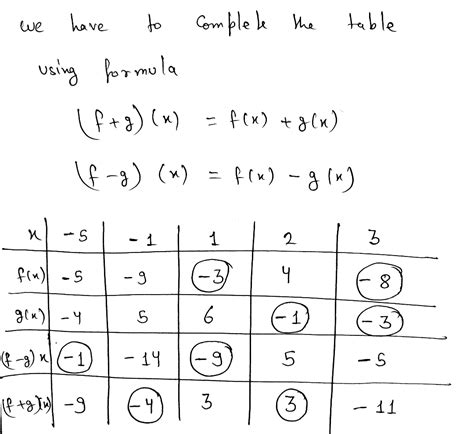 we have to complete the table
using formula
(f+g)(x) = f(x) + g(x)
(f-g) (x) = f(x) - g(x)
x -5 -1 1 2 3
f(x) -5 -9 -3 4 -8
g(x) -4 5 6 -1 -3
(f-g)x -1 -14 -9 5 -5
(f+g)(x) -9 -4 3 3 -11